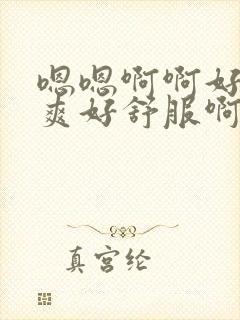 嗯嗯啊啊好
爽好舒服啊
真宫纶